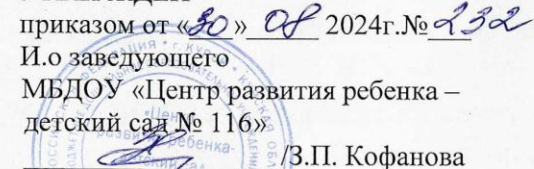 приказом от «30» 08 2024г.№ 232
И.о заведующего
МБДОУ «Центр развития ребенка –
детский сад № 116»
/З.П. Кофанова